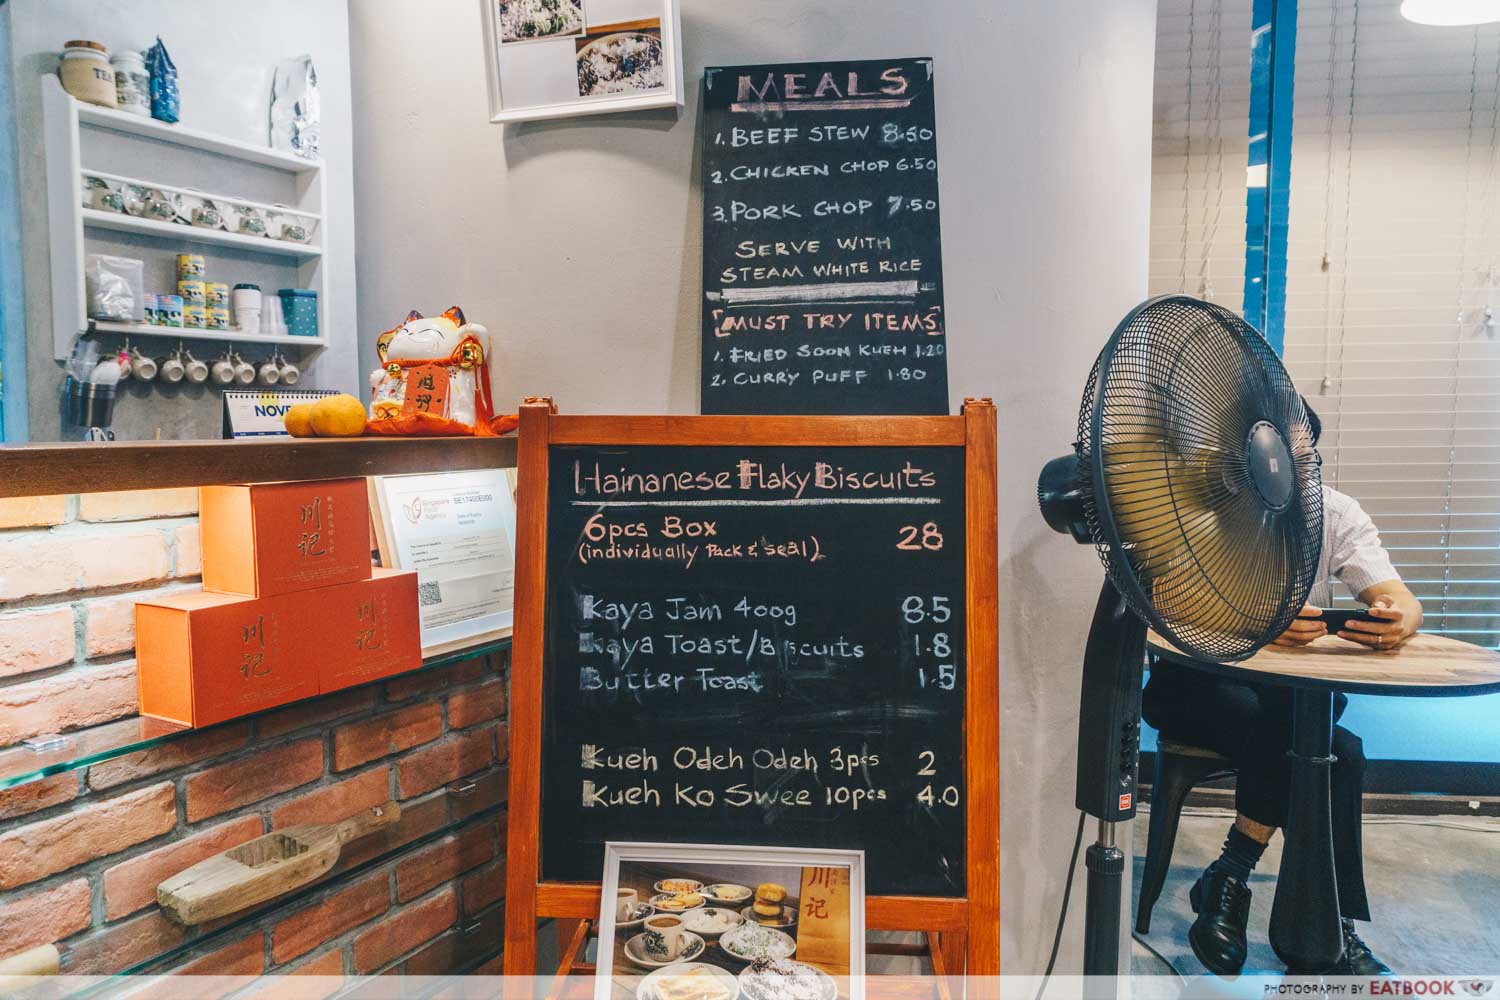 MEALS
1. BEEF STEW 8.50
2. CHICKEN CHOP 6.50
3. PORK CHOP 7.50
SERVE WITH
STEAM WHITE RICE
[MUST TRY ITEMS]
1. FRIED SOON KUEH 1.20
2. CURRY PUFF 1.80
Hainanese Flaky Biscuits
6pcs Box 28
(individually Pack & seal)
Kaya Jam 400g 8.5
Kaya Toast/Biscuits 1.8
Butter Toast 1.5
Kueh Odeh Odeh 3pcs 2
Kueh Ko Swee 10pcs 4.0
TEA
NOVE
川记
川记
川记
Singapore
Food
Agency
SE17400E000
川记
PHOTOGRAPHY BY EATBOOK